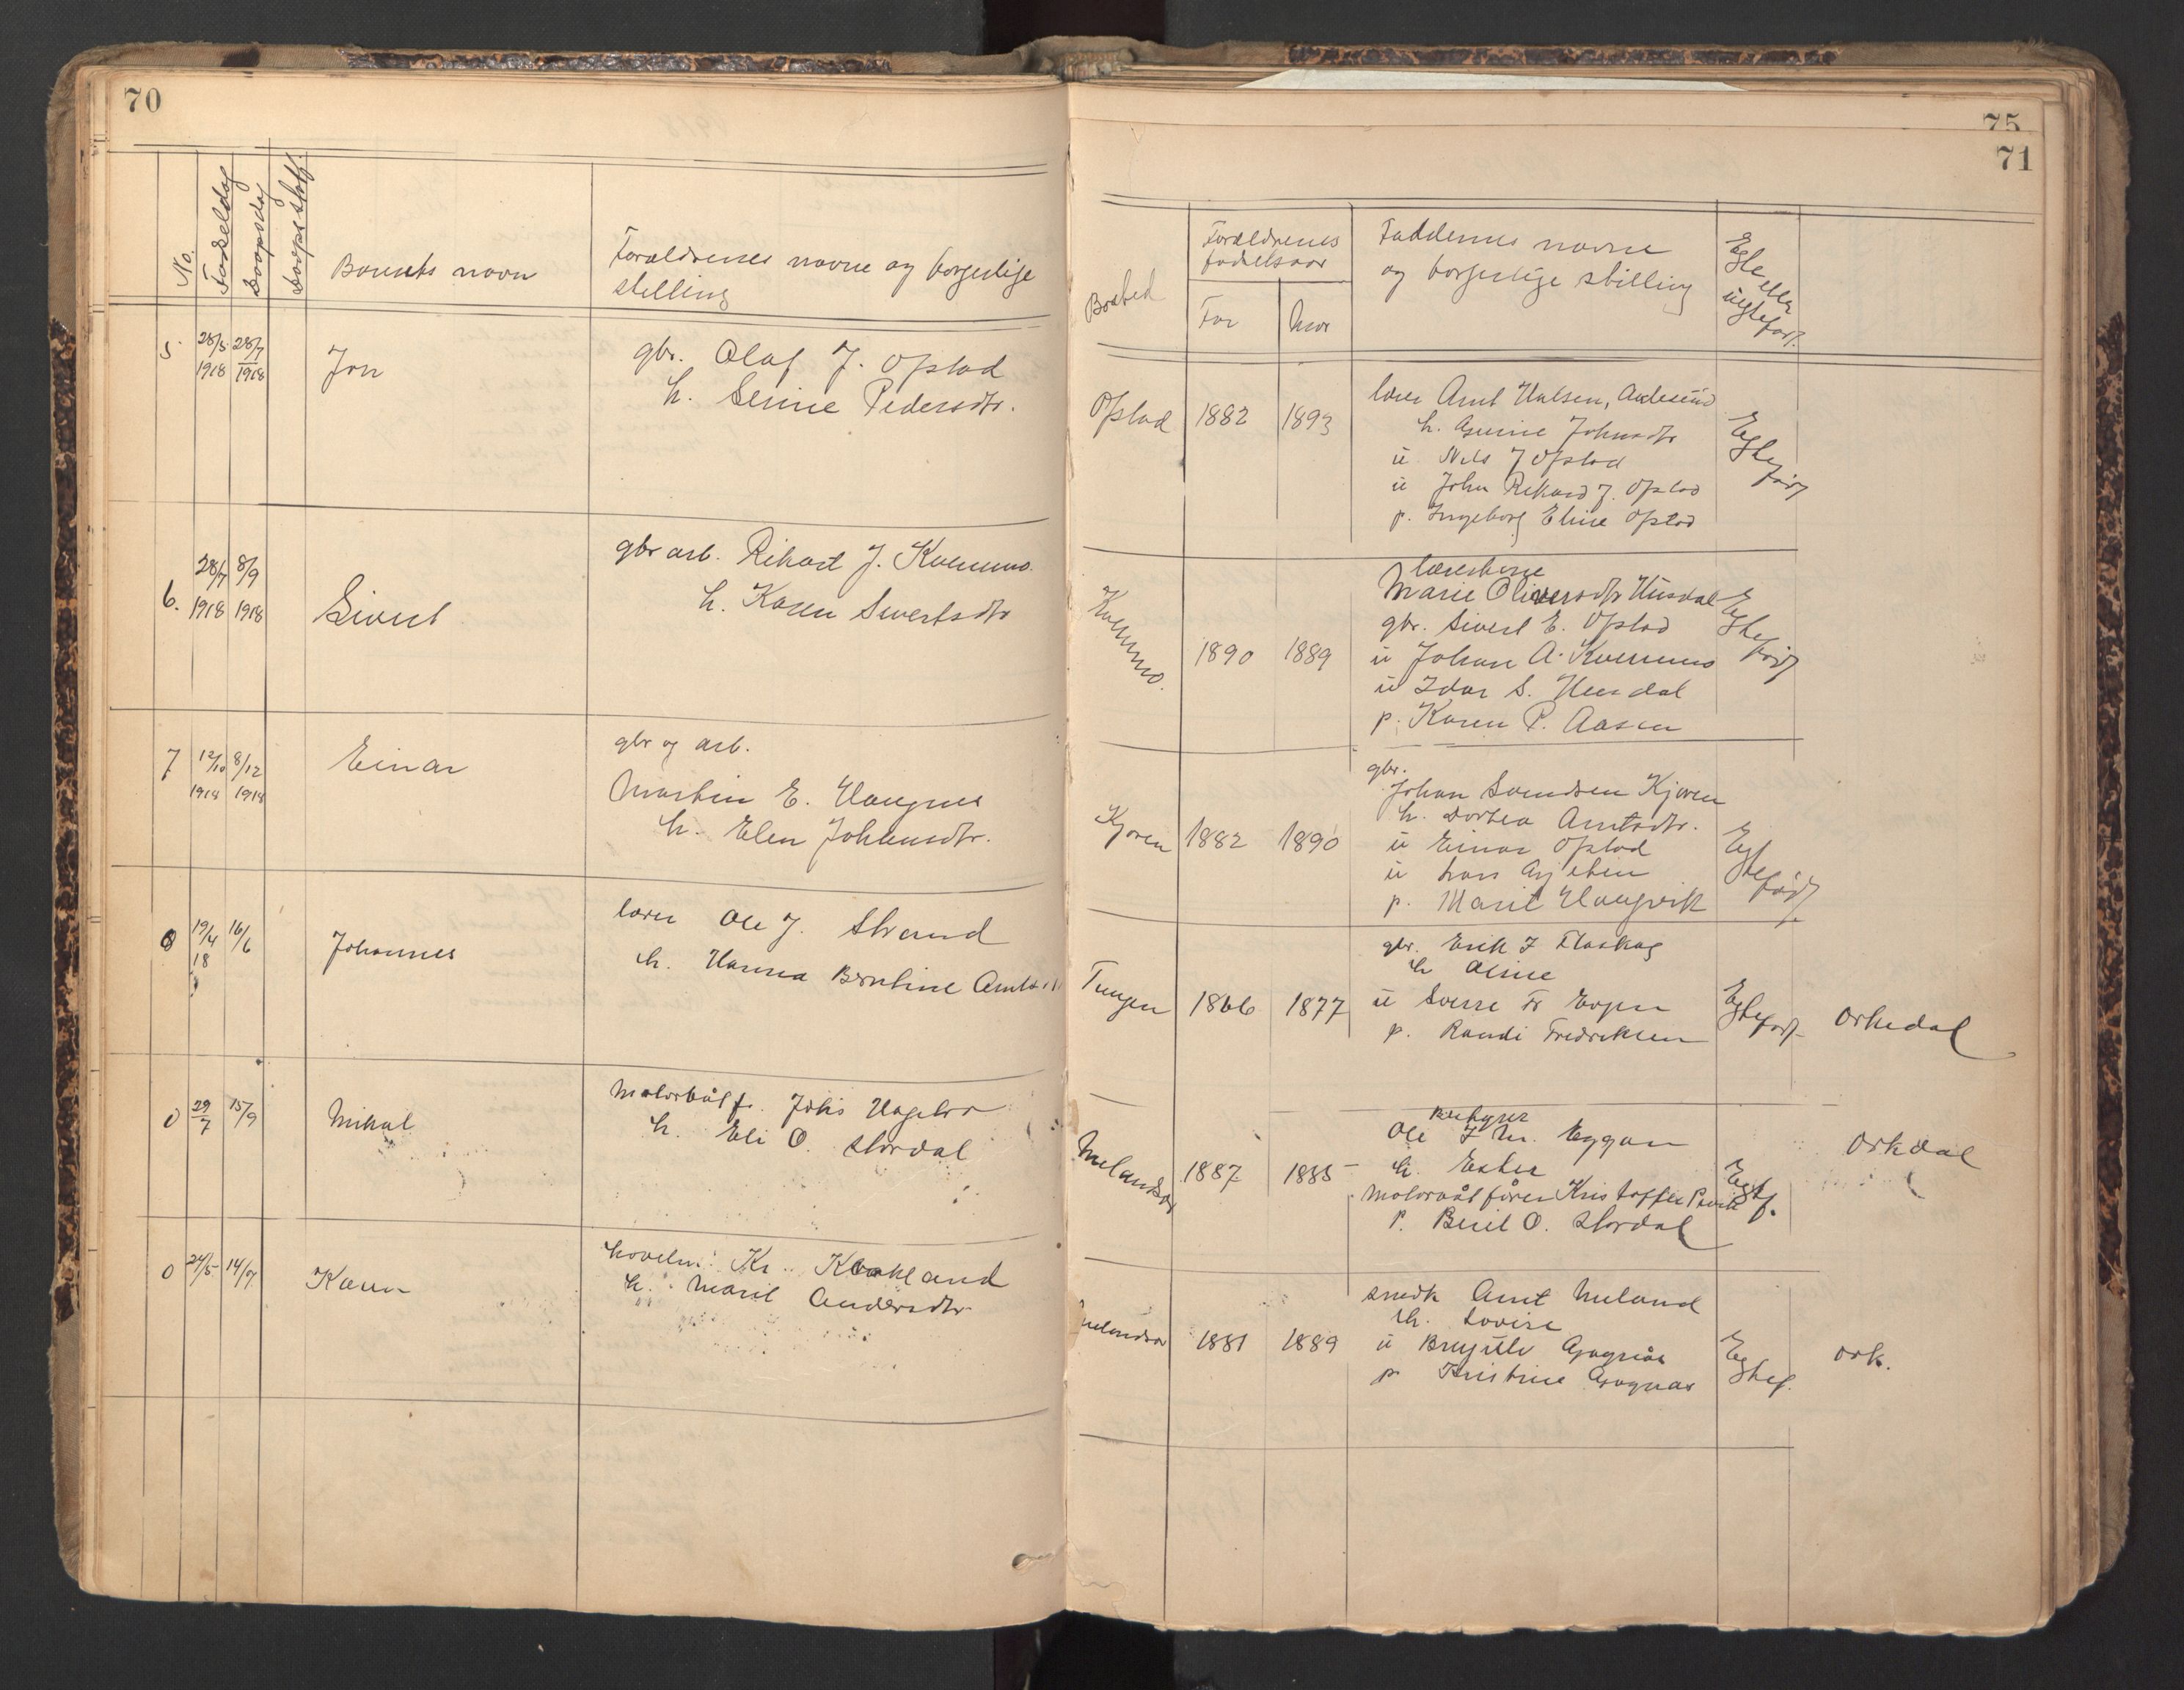 70
No.
Fødselsdag
Daapsdag
Barnets navn
Forældrenes navne og borgerlige
stilling
5
28/5 28/7
1918 1918
Jon
gbr. Olaf J. Opstad
h. Serine Pedersdtr.
6.
28/7 8/9
1918 1918
Sivert
gbr arb. Rikart J. Kvernmo.
h. Karen Sivertsdtr
7
12/10 8/12
1918 1918
Einar
gbr og arb.
Martin E. Haugnes
h. Elen Johansdtr.
0
19/4 16/6
18
Johannes
lærer Ole J. Strand
h. Hanna Berntine
0
29/7 15/9
Mikal
Motorbåtf. Johs
h. Eli O. Stordal
0
24/5 14/7
Karen
Kr. Kaakland
h. Marit Andersdtr
75
71
Bosted
Forældrenes
fødselsaar
Far
Mor
Faddernes navne
og borgerlige stilling
Egte eller
uegtefødt.
Opstad
1882
1893
lærer Arnt Halsen,
h. Gurine Johnsdtr
u Nils J Opstad
u John Rikard J. Opstad
p. Ingeborg Eline Opstad
Egtefødt
Kvernmo.
1890
1889
Marie Oliversdtr Husdal
gbr. Sivert E. Opstad
u Johan A. Kvernmo
u Idar S. Husdal
p. Karen P. Aasen
Egtefødt
Kjøren
1882
1890
gbr.
Johan Svendsen Kjøren
h. Dortea Arntsdtr.
u Einar Opstad
u Lars
p. Marit Haugvik
Egtefødt
Tungen
1866
1877
gbr. Erik J
h Oline
u Sverre Fr
p. Randi Fredriksen
Egtefødt
Orkedal
1887
1885
Ole J M. Eggan
h. Ester
Motorbåtfører Kristoffer
p. Beril O. Stordal
Egtef.
Orkdal
1881
1889
smed Arnt Meland
h. Lovise
u
p Kristine
Egtef.
Ork.